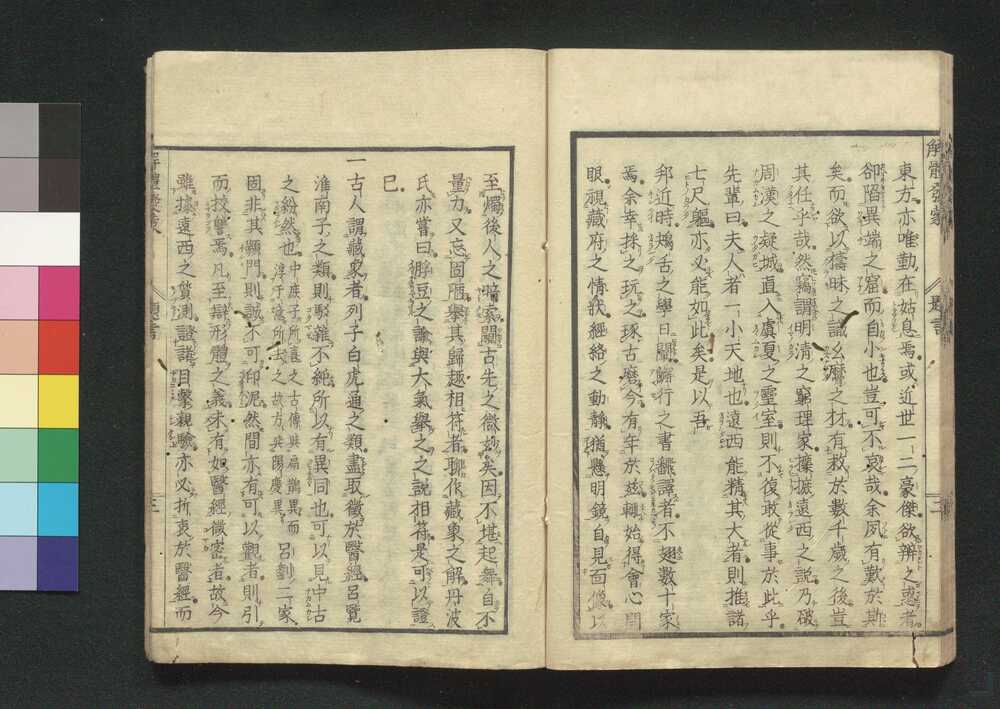 東方亦唯勤在姑息焉或近世一二豪傑欲辨之惑者
卻陷異端之窟而自小也豈可不哀哉余夙有歎於斯
矣而欲以擣昧之識幺麿之材有裁於數千歲之後豈
其任乎哉然竊謂明清之窮理家攗摭遠西之說乃破
周漢之疑城直入虞夏之靈室則不復敢從事於此乎
先輩曰夫人者一小天地也遠西能精其大者則推諸
七尺軀亦必能如此矣是以吾
邦近時鴂舌之學日闢觧行之書飜譯者不翅數十家
焉余幸採之玩之琢古磨今有年於玆輙始得會心開
眼視藏府之情狀經絡之動靜猶懸明鏡自見面像以
至燭後人之暗索闢古先之微妙矣因不堪起舞自不
量力又忘固陋舉其歸趣相符者聊作藏象之解丹波
氏亦嘗曰之論與大氣舉之之說相符是可以證
已
一古人謂藏象者列子白虎通之類盡取徵於醫經呂覽
淮南子之類則駁雜不純所以有異同也可以見中古
之紛然也中庶子所喜之古傳與扁鵲異而
淳于意所去之故方與陽慶異呂劉二家
固非其顓門則誠不可抑泥然間亦有可以觀者則引
而挍讐焉凡至辯形體之義未有如醫經微密者故今
雖據遠西之質測證諸目擊親驗亦必折衷於醫經而
解體發蒙
題言
三